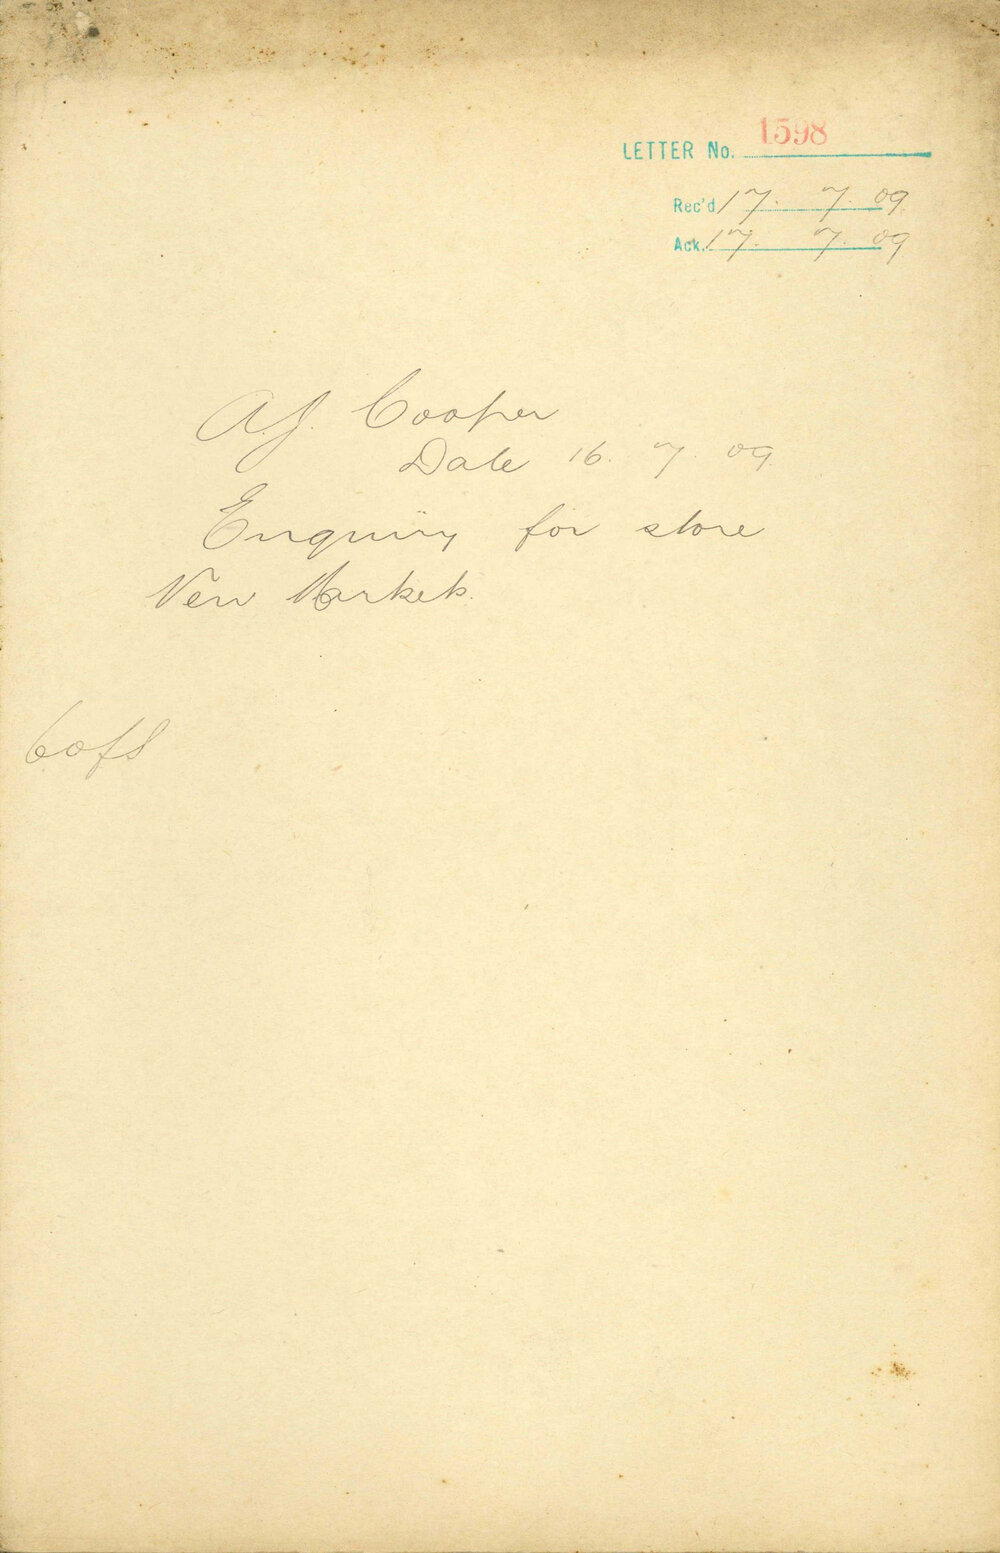 LETTER No. 1598
Rec'd 17. 7. 09.
Ack. 17. 7. 09
A.J. Cooper
Date 16. 7. 09.
Enquiry for store
New Markets.